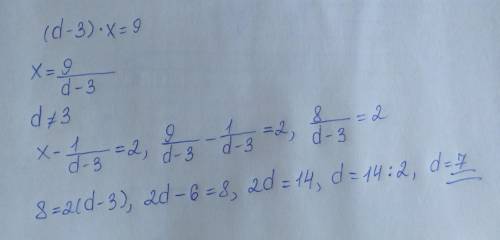 (d-3)·x=9
x=9/(d-3)
d≠3
x-1/(d-3)=2, 9/(d-3)-1/(d-3)=2, 8/(d-3)=2
8=2(d-3), 2d-6=8, 2d=14, d=14:2, d=7